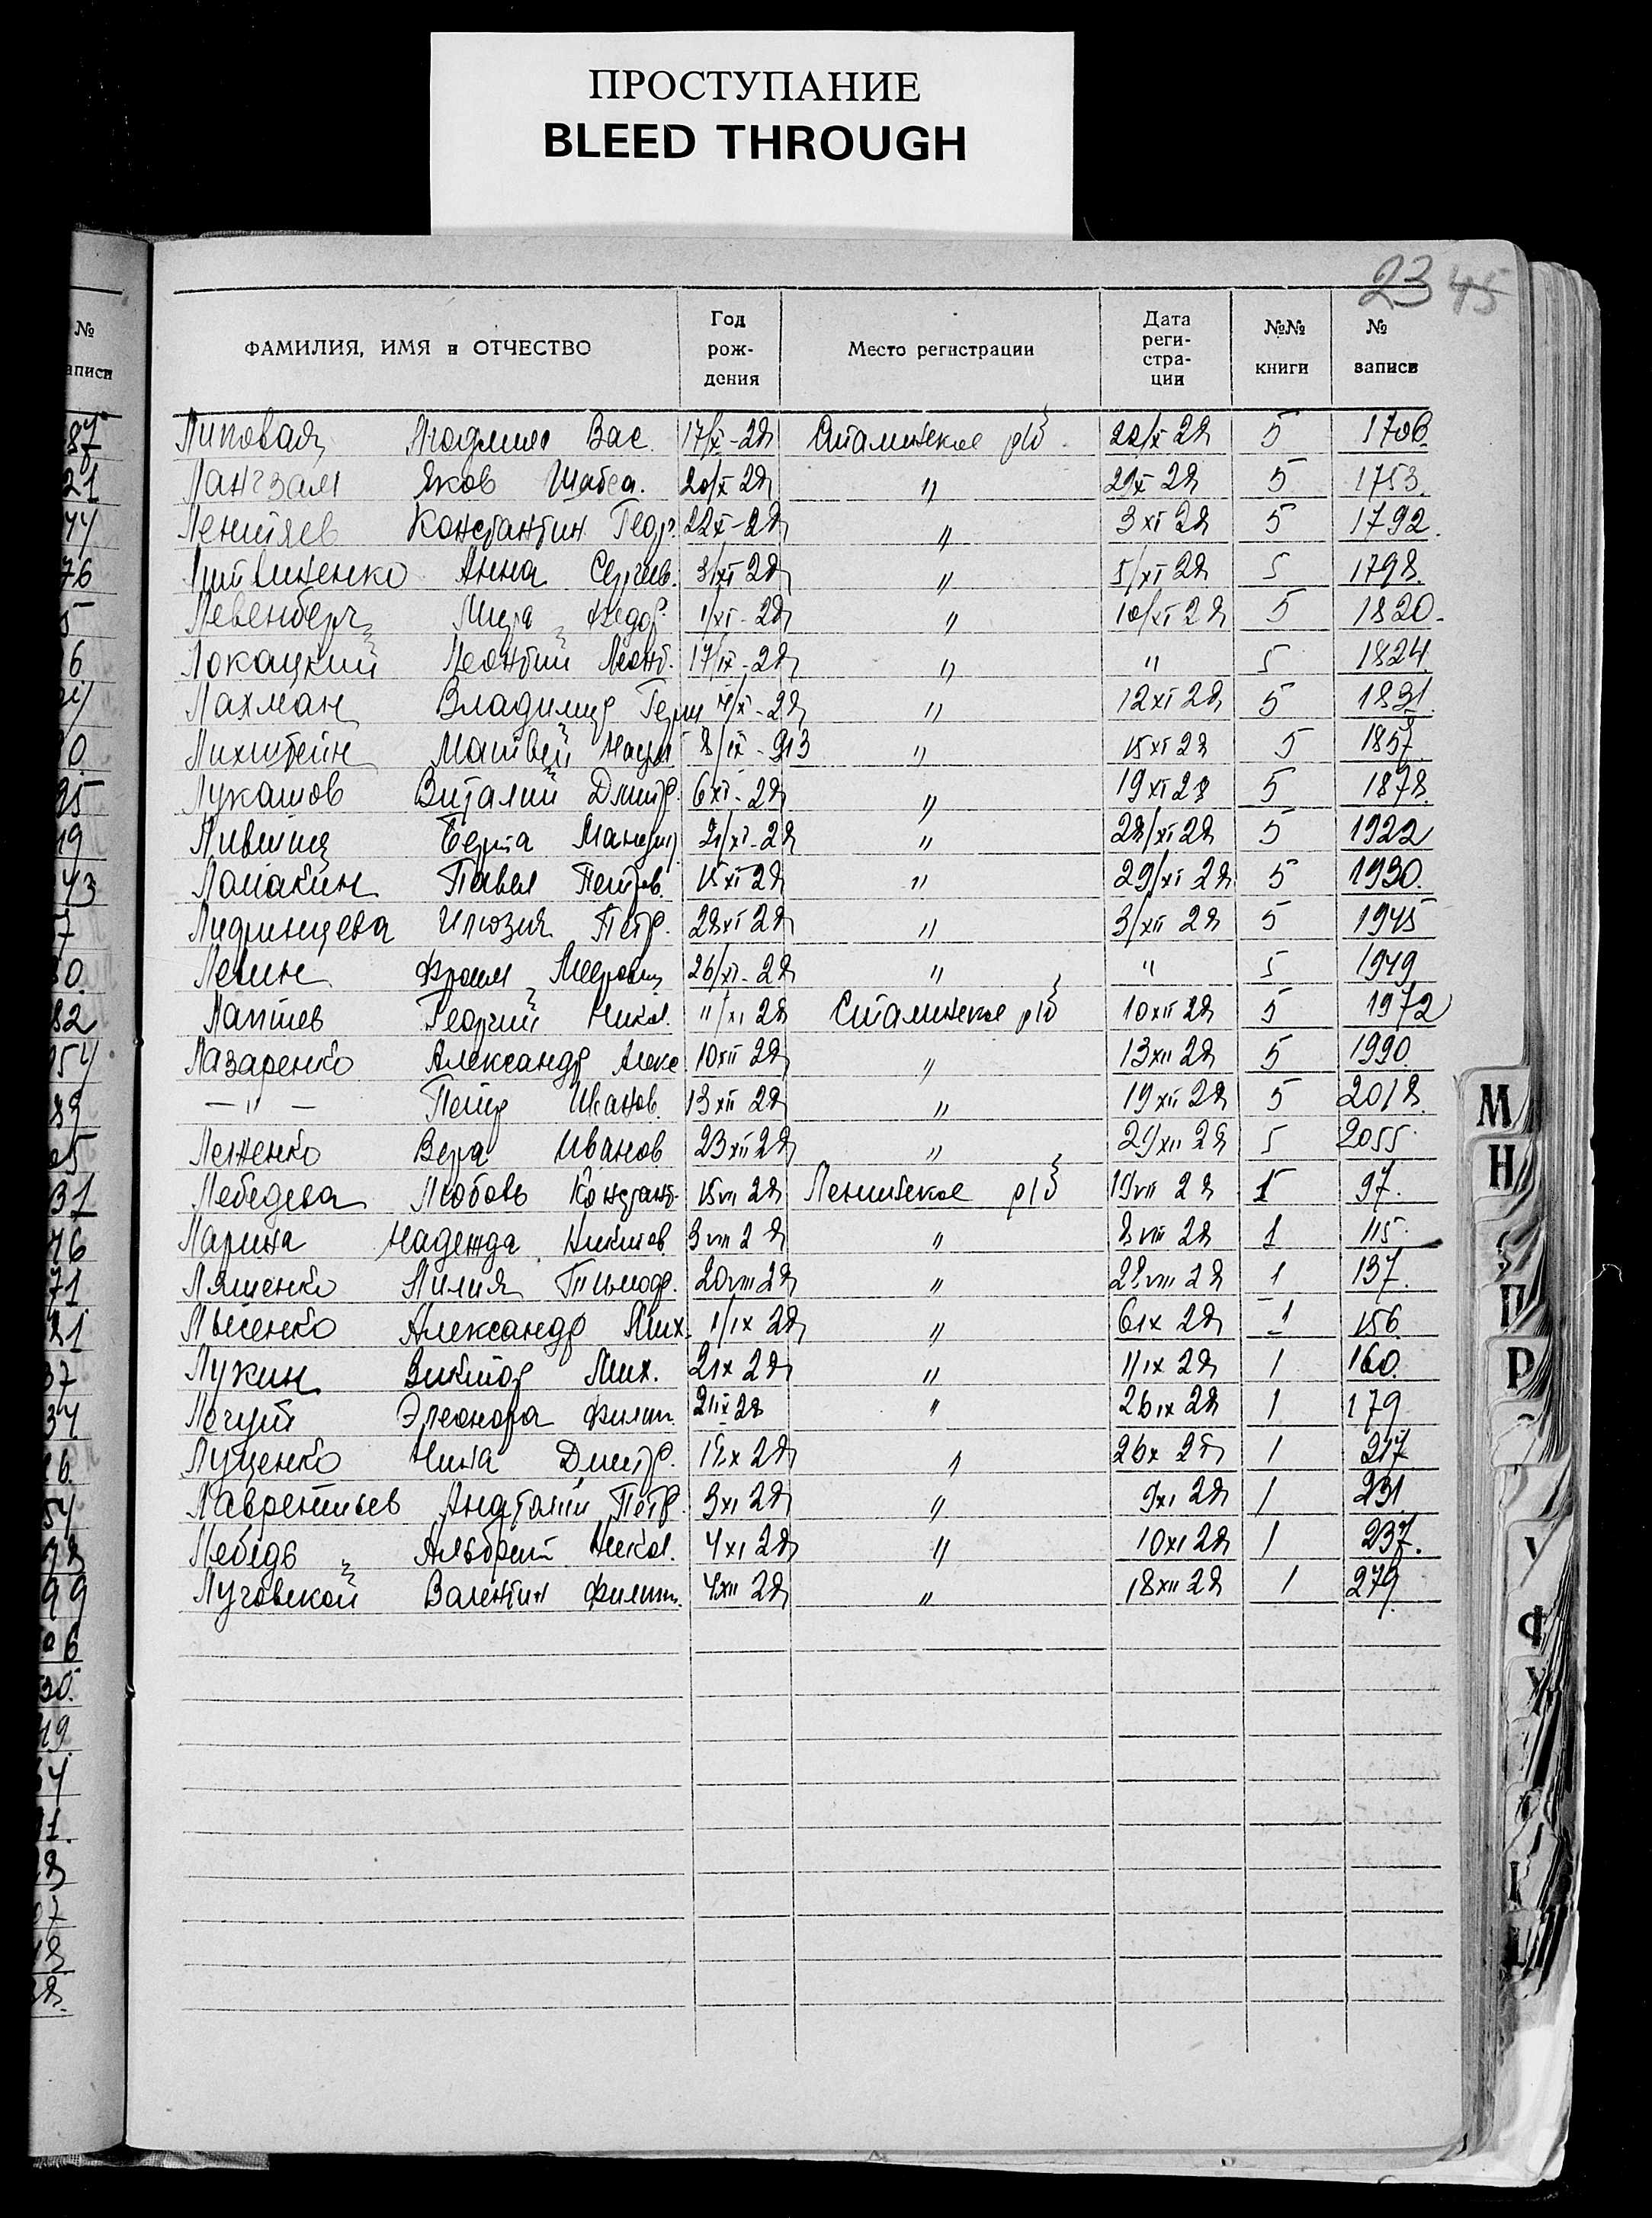 ПРОСТУПАНИЕ
BLEED THROUGH
23 45
ФАМИЛИЯ, ИМЯ и ОТЧЕСТВО Год рож- дения Место регистрации Дата реги- стра- ции №№ книги № записи
Липовая Людмила Вас. 17/X-28 Сталинское р/б 22/X 28 5 1706.
Лангзам Яков Шабса. 20/X 28 " 29X 28 5 1753.
Лентяев Константин Геор. 22X-28 " 3 XI 28 5 1792.
Литвиненко Анна Сергеев. 3/XI 28 " 5/XI 28 5 1798.
Левенберг Мира Федор. 1/XI-28 " 10/XI 28 5 1820.
Локацкий Леонтий Леонт. 17/IX-28 " " 5 1824.
Лахман Владимир Герш 4/X-28 " 12XI 28 5 1831.
Лихтштейн Матвей 8/IX-913 " 15XI 28 5 1857
Лукашов Виталий Дмитр. 6XI-28 " 19XI 28 5 1878.
Лившиц Берта 21/XI-28 " 28/XI 28 5 1922
Ломакин Павел Петров. 15XI 28 " 29/XI 28 5 1930.
Петр. 28XI 28 " 3/XII 28 5 1945
Левин Фроим Меерович 26/XI-28 " " 5 1949
Лаптев Георгий Никол. 11/XI 28 Сталинское р/б 10XII 28 5 1972
Лазаренко Александр Алекс. 10XII 28 " 13XII 28 5 1990.
— " — Петр Иванов. 13XII 28 " 19XII 28 5 2018.
Леженко Вера Иванов 23XII 28 " 29XII 28 5 2055.
Лебедева Любовь Констант. 15VII 28 Ленинское р/б 19VII 28 1 97.
Ларина Надежда Никитов. 3VIII 28 " 8VIII 28 1 115.
Ляшенко Лилия Тимоф. 20VIII 28 " 28VIII 28 1 137.
Лысенко Александр Мих. 1/IX 28 " 6IX 28 1 156
Лукин Виктор Мих. 2IX 28 " 11IX 28 1 160.
Элеонора Филип. 21IX 28 " 26IX 28 1 179
Луценко Нина Дмитр. 12X 28 " 26X 28 1 217
Лаврентьев Анатолий Петр. 3XI 28 " 9XI 28 1 231
Лебедь Альберт Никол. 4XI 28 " 10XI 28 1 237.
Луговской Валентин Филип. 4XII 28 " 18XII 28 1 279.
М
Н
П
Р
У
Ф